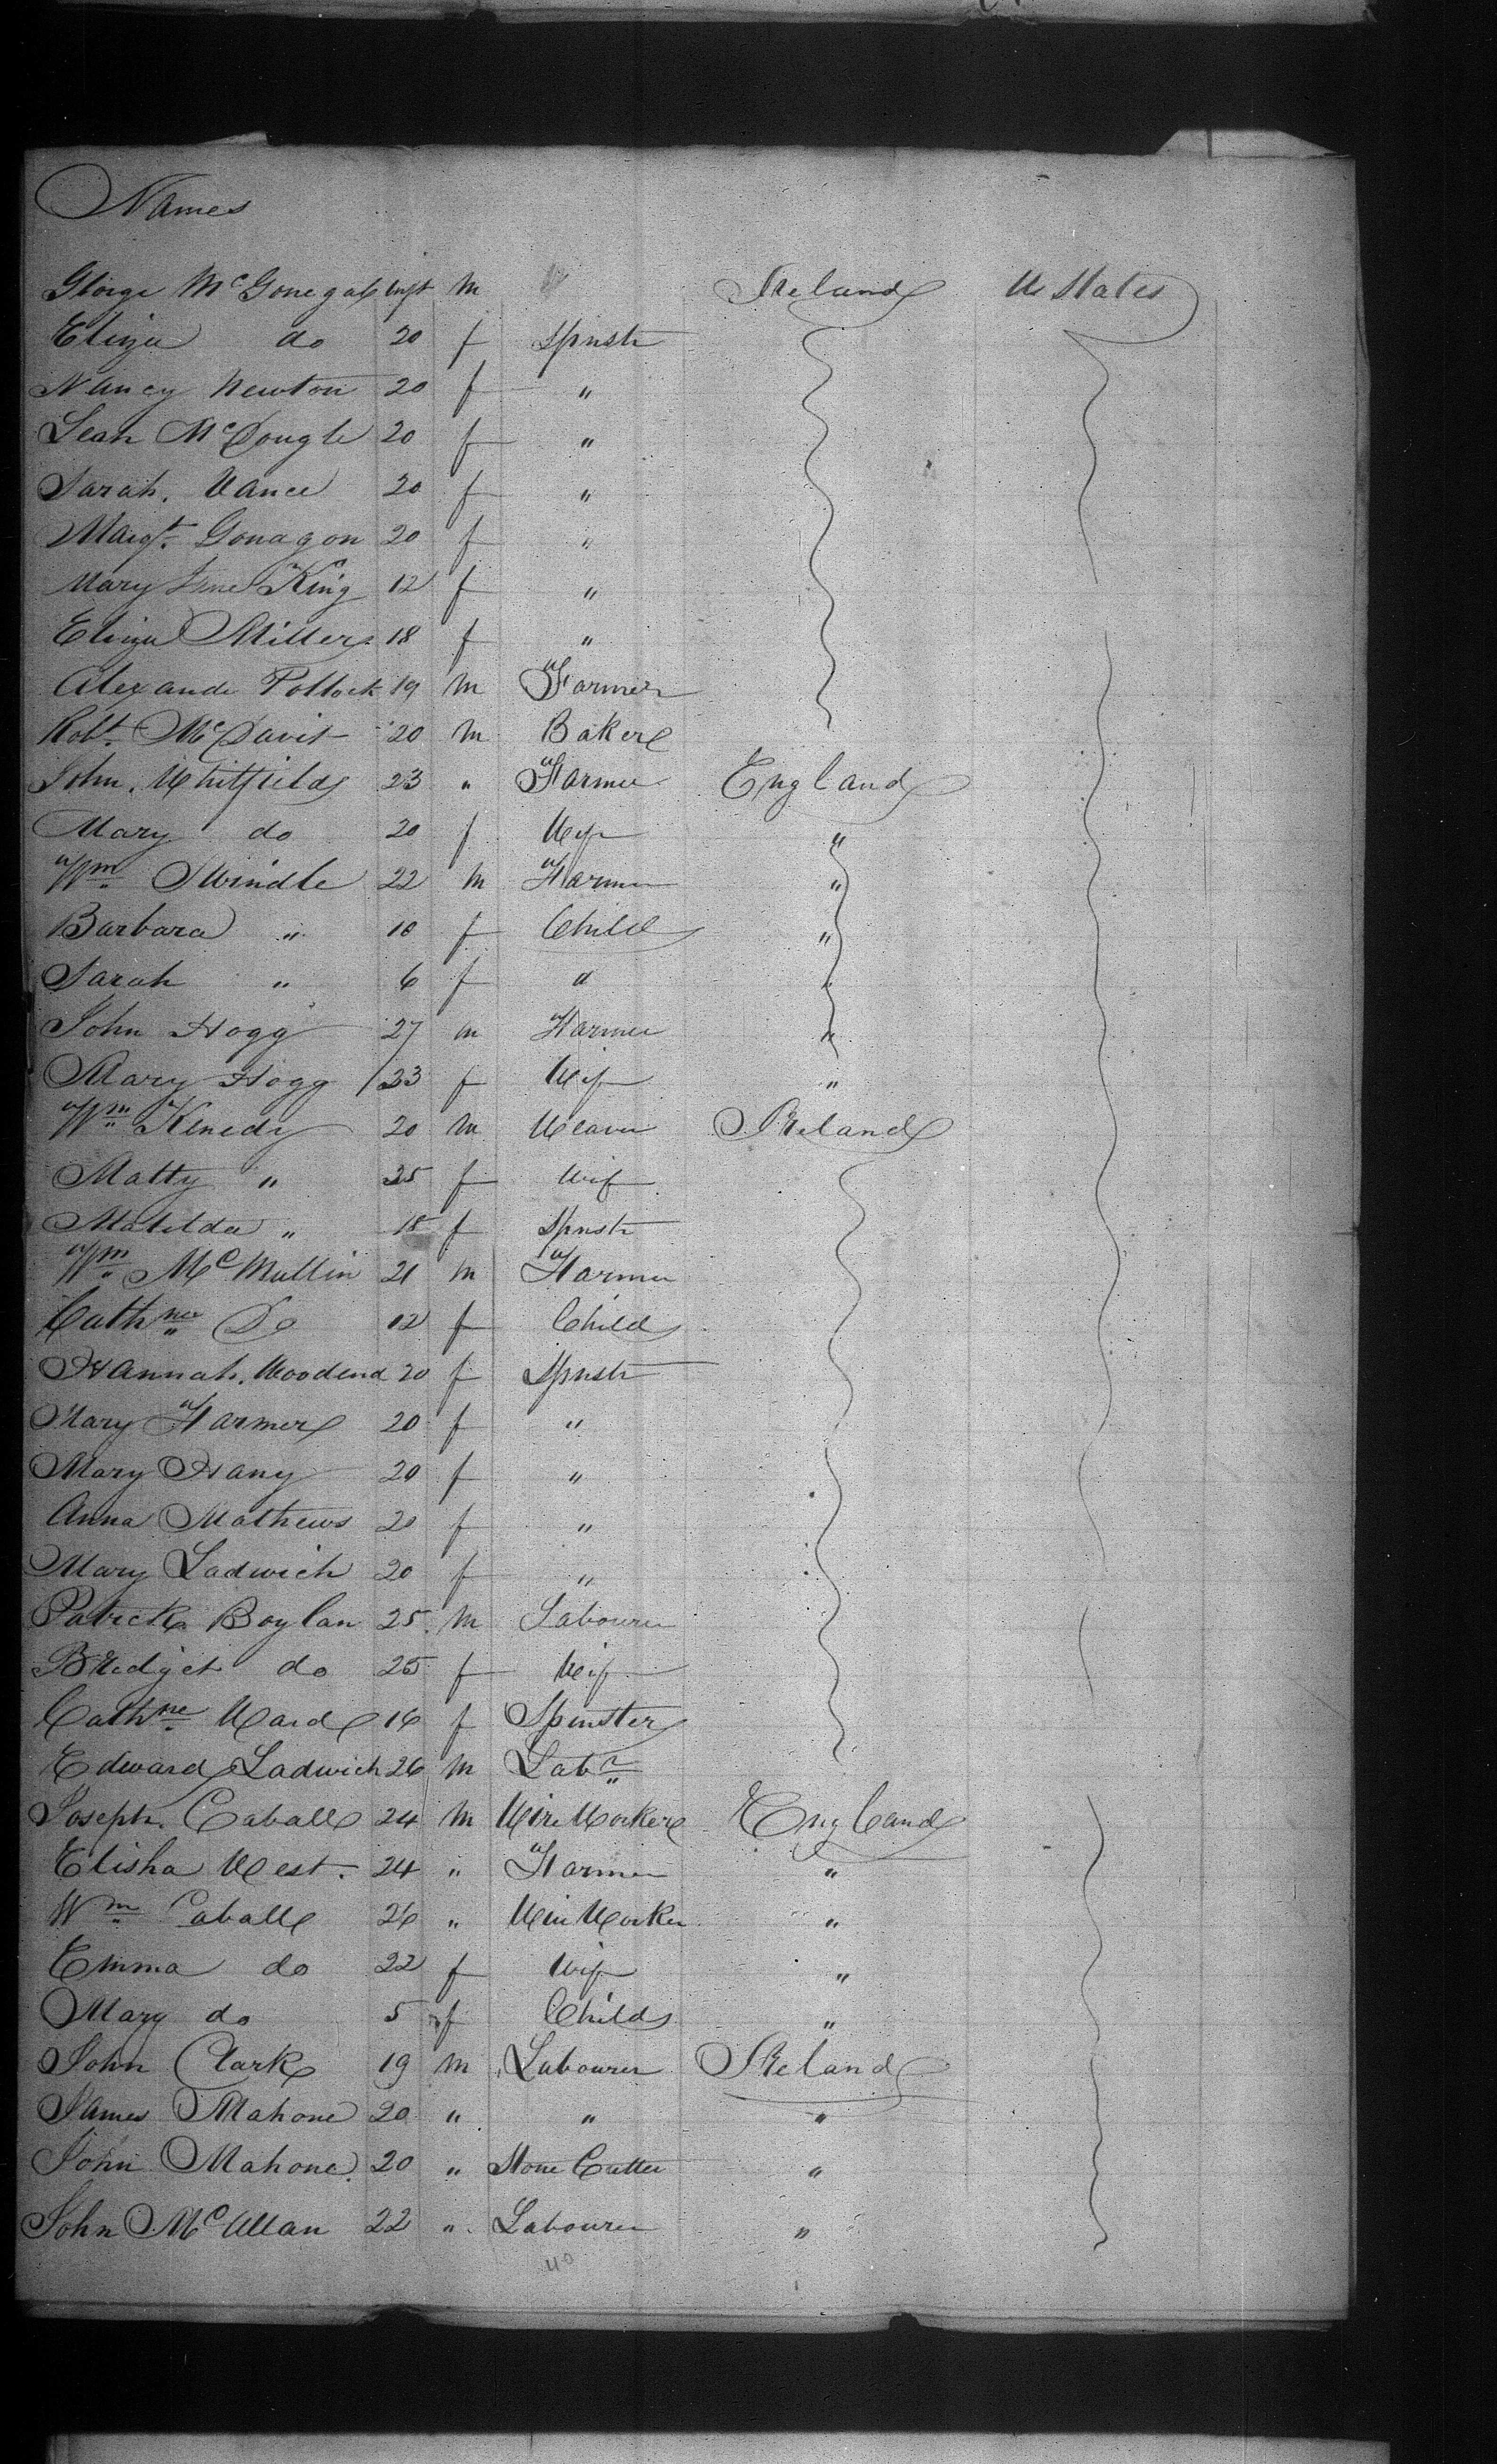 Names
George McGonegal inft m Ireland U States
Eliza do 20 f Spnstr
Nancy Newton 20 f "
Leah McDougle 20 f "
Sarah. Vance 20 f "
Margt. Gonagon 20 f "
Mary Jane King 12 f "
Eliza Miller 18 f "
Alexande Pollock 19 m Farmer
Robt. McDavit 20 m Baker
John. Whitfield 23 " Farmer England
Mary do 20 f Wife "
Wm Swindle 22 m Farmer "
Barbara " 10 f Child "
Sarah " 6 f " "
John Hogg 27 m Farmer "
Mary Hogg 23 f Wife "
Wm Kenedy 20 m Weaver Ireland
Matty " 25 f Wife
Matilda " 18 f Spnstr
Wm McMullin 21 m Farmer
Cathne Do 12 f Child
Hannah. Woodend 20 f Spnstr
Mary Farmer 20 f "
Mary Hany 20 f "
Anna Mathews 20 f "
Mary Ladwich 20 f "
Patrick Boylan 25 m Labourer
Bredget do 25 f Wife
Cathne Ward 16 f Spinster
Edward Ladwich 26 m Labr
Joseph. Caball 24 m Wire Worker England
Elisha West. 24 " Farmer "
Wm Caball 26 " Wire Worker "
Emma do 22 f Wife "
Mary do 5 f Child "
John Clark 19 m Labourer Ireland
James Mahone 20 " " "
John Mahone. 20 " Stone Cutter "
John McAllan 22 " Labourer "
40